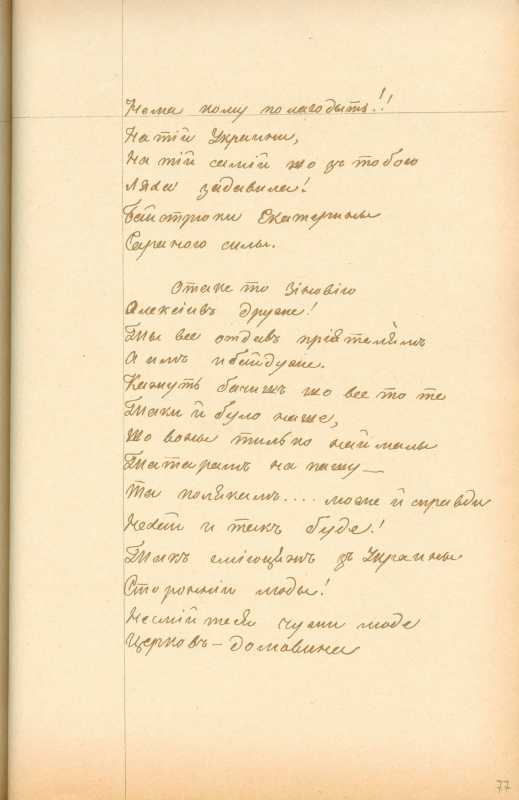 Нема кому полагодыть!!
На тій Украини,
На тій самій що зъ тобою
Ляха задавила!
Байстрюки Екатерины
Сараною силы.
Отаке то Зіновію
Алексіивъ друже!
Ты все отдавъ пріятелямъ
А имъ и байдуже.
Кажуть бачишъ що все то те
Таки й було наше,
Що воны тилько наймалы
Татарамъ на пашу —
Та полякамъ.... може й справди
Нехай и такъ буде!
Такъ сміюцця жъ зъ Украины
Сторонніи люды!
Не смійтеся чужи люде
Церковъ – домовина
77